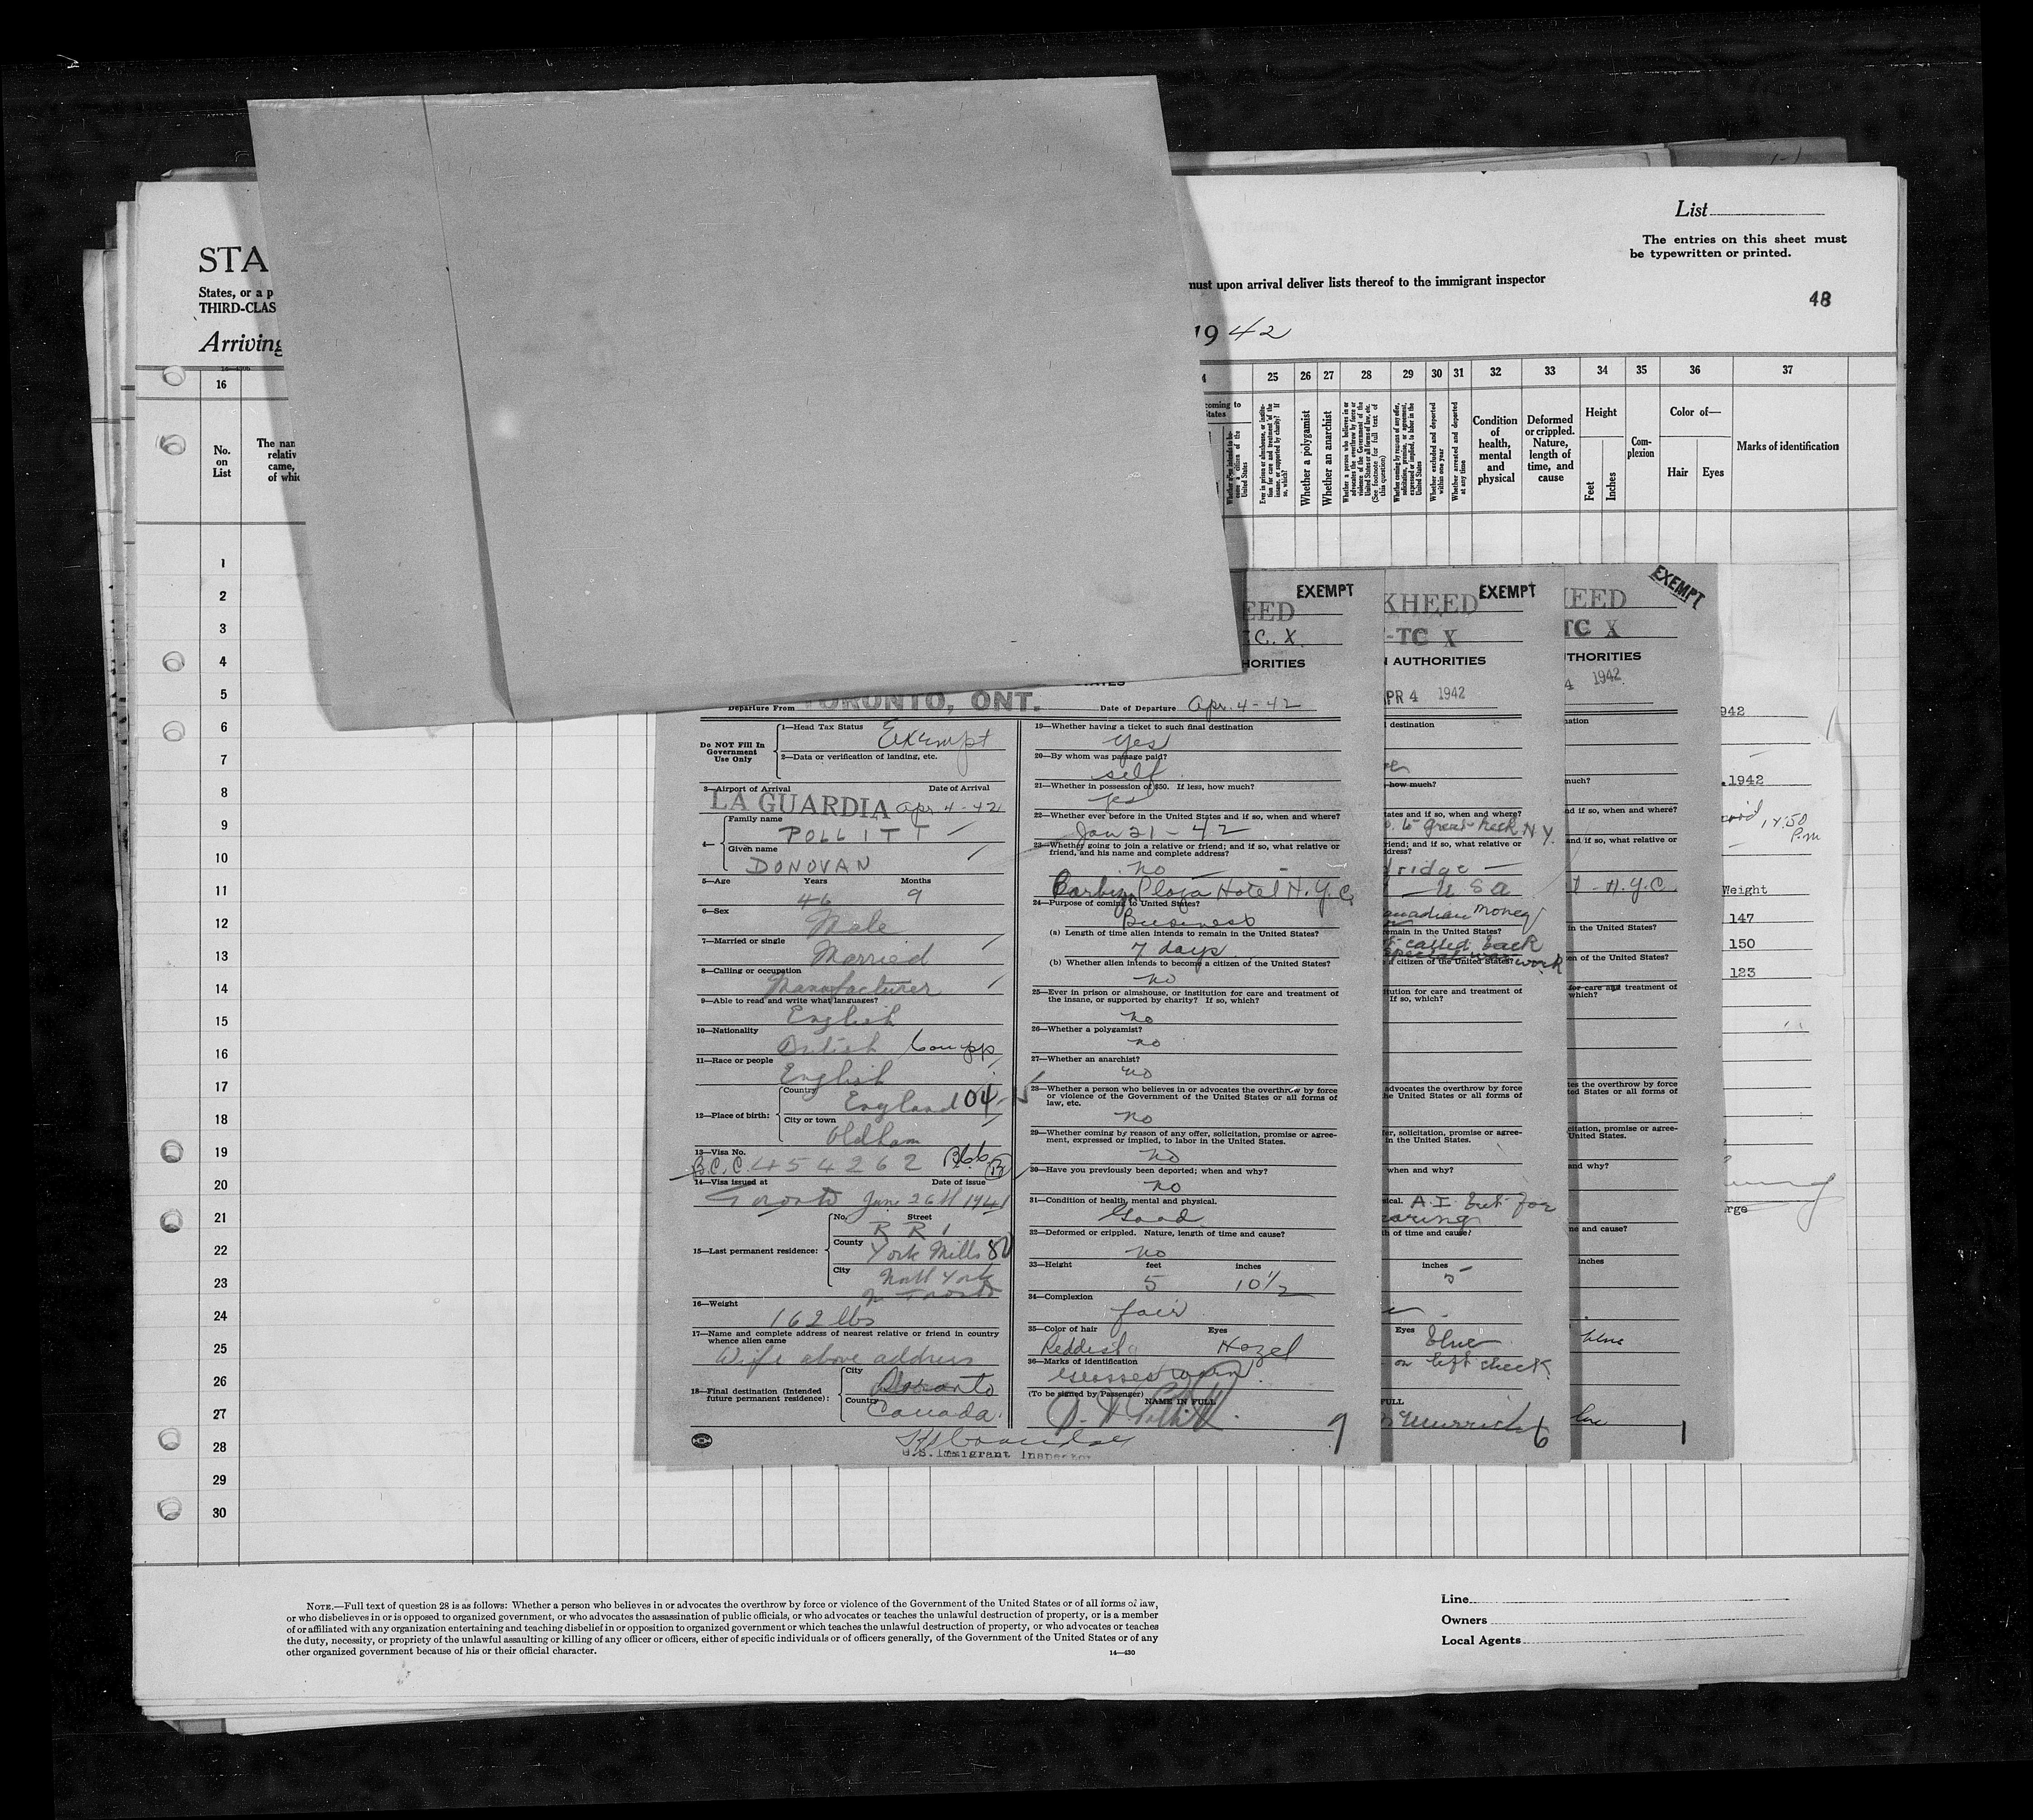 List
The entries on this sheet must
be typewritten or printed.
STA
States, or a p
must upon arrival deliver lists thereof to the immigrant inspector
THIRD-CLAS
48
Arriving
1942
16
25 26 27 28 29 30 31 32 33 34 35 36 37
No.
on
List
The nam
relativ
came,
of whic
coming to
States
Whether a polygamist
Whether an anarchist
Whether a person who believes in or
advocates the overthrow by force or
violence of the Government of the
United States or all forms of law, etc.
(See footnote for full text of
this question)
Whether coming by reasons of any offer,
solicitation, promise, or agreement,
expressed or implied, to labor in the
United States
Whether excluded and deported
within one year
Whether arrested and deported
at any time
Condition
of
health,
mental
and
physical
Deformed
or crippled.
Nature,
length of
time, and
cause
Height
Feet
Inches
Com-
plexion
Color of—
Hair Eyes
Marks of identification
1
2
3
4
5
6
7
8
9
10
11
12
13
14
15
16
17
18
19
20
21
22
23
24
25
26
27
28
29
30
EXEMPT
EED
C. X.
HORITIES
STATES
Departure From TORONTO, ONT.
Date of Departure Apr. 4-42
Do NOT Fill In
Government
Use Only
1—Head Tax Status Exempt
2—Data or verification of landing, etc.
3—Airport of Arrival Date of Arrival
LA GUARDIA Apr 4-42
4—
Family name
POLLITT
Given name
DONOVAN
5—Age Years Months
46 9
6—Sex
Male
7—Married or single
Married
8—Calling or occupation
Manufacturer
9—Able to read and write what languages?
English
10—Nationality
British
11—Race or people
English
12—Place of birth:
Country
England 04
City or town
Oldham
13—Visa No.
B.C.C. 454262
14—Visa issued at Date of issue
Toronto Jun 26th 1941
15—Last permanent residence:
No. Street
R R 1
County
York Mills
City
North York
Toronto
16—Weight
162 lbs
17—Name and complete address of nearest relative or friend in country
whence alien came
Wife above address
18—Final destination (Intended
future permanent residence):
City
Toronto
Country
Canada
U.S. Immigrant Inspector
19—Whether having a ticket to such final destination
Yes
20—By whom was passage paid?
self
21—Whether in possession of $50. If less, how much?
yes
22—Whether ever before in the United States and if so, when and where?
Jan 21-42
23—Whether going to join a relative or friend; and if so, what relative or
friend, and his name and complete address?
No
Barbizon Plaza Hotel N.Y.C.
24—Purpose of coming to United States?
Business
(a) Length of time alien intends to remain in the United States?
7 days
(b) Whether alien intends to become a citizen of the United States?
no
25—Ever in prison or almshouse, or institution for care and treatment of
the insane, or supported by charity? If so, which?
no
26—Whether a polygamist?
no
27—Whether an anarchist?
no
28—Whether a person who believes in or advocates the overthrow by force
or violence of the Government of the United States or all forms of
law, etc.
no
29—Whether coming by reason of any offer, solicitation, promise or agree-
ment, expressed or implied, to labor in the United States.
no
30—Have you previously been deported; when and why?
no
31—Condition of health, mental and physical.
Good
32—Deformed or crippled. Nature, length of time and cause?
no
33—Height feet inches
5 10½
34—Complexion
fair
35—Color of hair Eyes
Reddish Hazel
36—Marks of identification
Glasses worn
(To be signed by Passenger) NAME IN FULL
9
EXEMPT
KHEED
-TC X
N AUTHORITIES
PR 4 1942
destination
how much?
tates and if so, when and where?
to Great Neck N.Y.
riend; and if so, what relative or
dress?
ridge
U S A
Canadian money
emain in the United States?
called back
special war work
a citizen of the United States?
itution for care and treatment of
If so, which?
advocates the overthrow by force
he United States or all forms of
fer, solicitation, promise or agree-
in the United States.
when and why?
sical. A.I but for
earing
th of time and cause?
inches
5
Eyes blue
on left cheek
FULL
McMurrich 6
EXEMPT
HEED
TC X
UTHORITIES
4 1942
nation
much?
nd if so, when and where?
and if so, what relative or
N.Y.C.
in the United States?
en of the United States?
for care and treatment of
which?
tes the overthrow by force
ted States or all forms of
icitation, promise or agree-
United States.
and why?
ne and cause?
inches
blue
1
942
1942
12:50
P.m
Weight
147
150
123
rge
NOTE.—Full text of question 28 is as follows: Whether a person who believes in or advocates the overthrow by force or violence of the Government of the United States or of all forms of law,
or who disbelieves in or is opposed to organized government, or who advocates the assassination of public officials, or who advocates or teaches the unlawful destruction of property, or is a member
of or affiliated with any organization entertaining and teaching disbelief in or opposition to organized government or which teaches the unlawful destruction of property, or who advocates or teaches
the duty, necessity, or propriety of the unlawful assaulting or killing of any officer or officers, either of specific individuals or of officers generally, of the Government of the United States or of any
other organized government because of his or their official character.
14—430
Line
Owners
Local Agents